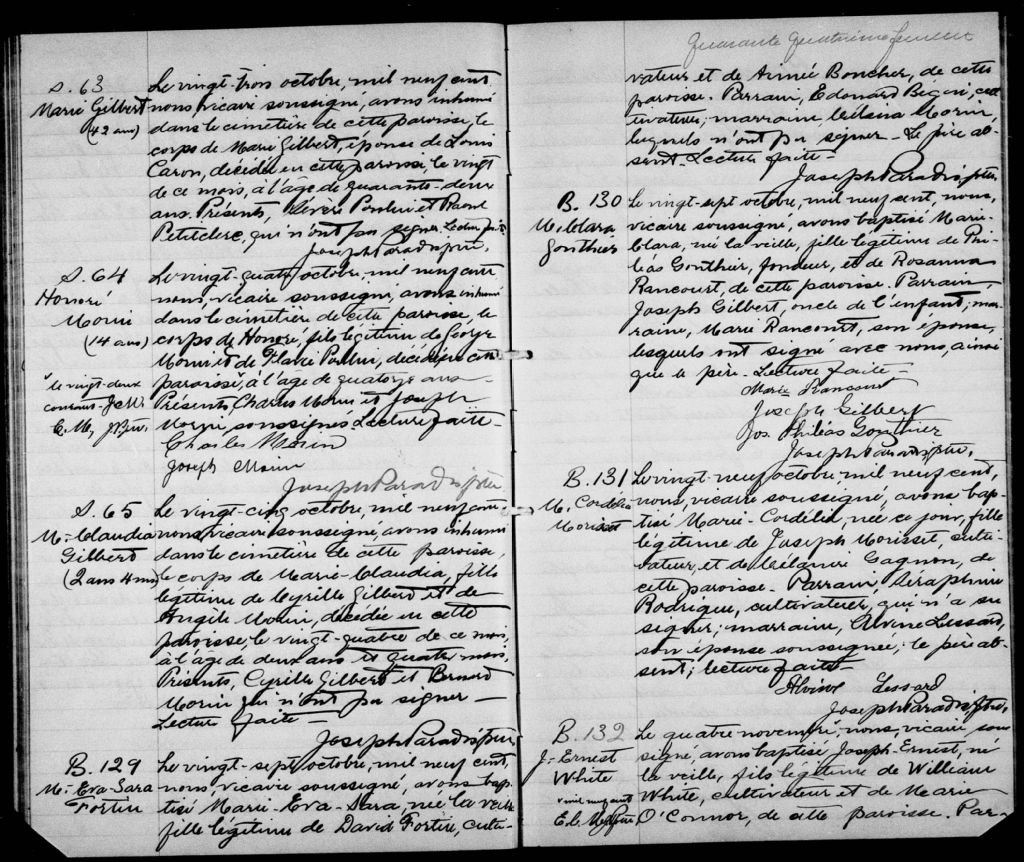 S. 63
Marie Gilbert
(42 ans)
Le vingt-trois octobre, mil neuf cent
nous, vicaire soussigné, avons inhumé
dans le cimetière de cette paroisse, le
corps de Marie Gilbert, épouse de Louis
Caron, décédée en cette paroisse, le vingt
de ce mois, à l'âge de quarante-deux
ans. Présents, Sévère Poulin et Raoul
Petitclerc, qui n'ont pu signer. Lecture faite
Joseph Paradis, ptre,
S. 64
Honoré
Morin
(14 ans)
"le vingt-deux
courant
Le vingt-quatre octobre, mil neuf cent
nous, vicaire soussigné, avons inhumé
dans le cimetière de cette paroisse, le
corps de Honoré, fils légitime de George
Morin et de Flavie Poulin, décédé, en cette
paroisse, à l'âge de quatorze ans—
Présents, Charles Morin et Joseph
Morin, soussignés. Lecture faite—
Charles Morin
Joseph Morin
Joseph Paradis, ptre
S. 65
M.-Claudia
Gilbert
(2 ans 4 mois)
Le vingt-cinq octobre, mil neuf cent
nous, vicaire soussigné, avons inhumé
dans le cimetière de cette paroisse,
le corps de Marie-Claudia, fille
légitime de Cyrille Gilbert et de
Angèle Morin, décédée en cette
paroisse, le vingt-quatre de ce mois,
à l'âge de deux ans et quatre mois.
Présents, Cyrille Gilbert et Bernard
Morin qui n'ont pu signer—
Lecture faite—
Joseph Paradis, ptre,
B. 129
M.-Eva-Sara
Fortin
Le vingt-sept octobre, mil neuf cent,
nous, vicaire soussigné, avons bap-
tisé Marie-Eva-Sara, née la veille
fille légitime de David Fortin, culti-
Quarante quatrième feuillet
vateur et de Aimée Boucher, de cette
paroisse. Parrain, Edouard Begin, cul
tivateur; marraine Morin,
lesquels n'ont pu signer—Le père ab-
sent. Lecture faite—
Joseph Paradis, ptre,
B. 130
M. Clara
Gonthier
Le vingt-sept octobre, mil neuf cent, nous,
vicaire soussigné, avons baptisé Marie-
Clara, né la veille, fille légitime de Phi-
léas Gonthier, fondeur, et de Rosanna
Rancourt, de cette paroisse. Parrain,
Joseph Gilbert, oncle de l'enfant; mar-
raine, Marie Rancourt, son épouse,
lesquels ont signé avec nous, ainsi
que le père. Lecture faite—
Marie Rancourt
Joseph Gilbert
Jos. Philéas Gonthier
Joseph Paradis, ptre,
B. 131
M. Cordélia
Morisset
Le vingt-neuf octobre, mil neuf cent,
nous, vicaire soussigné, avons bap-
tisé Marie-Cordélia, née ce jour, fille
légitime de Joseph Morisset, culti-
vateur, et de Mélanie Gagnon, de
cette paroisse. Parrain, Séraphin
Rodrigue, cultivateur, qui n'a su
signer; marraine, Alvine Lessard,
son épouse soussignée; le père ab-
sent; lecture faite—
Alvine Lessard
Joseph Paradis, ptre,
B. 132
J.-Ernest
White
"mil neuf cent
Le quatre novembre, nous, vicaire sous
signé, avons baptisé Joseph-Ernest, né
la veille, fils légitime de William
White, cultivateur et de Marie
O'Connor, de cette paroisse. Par-